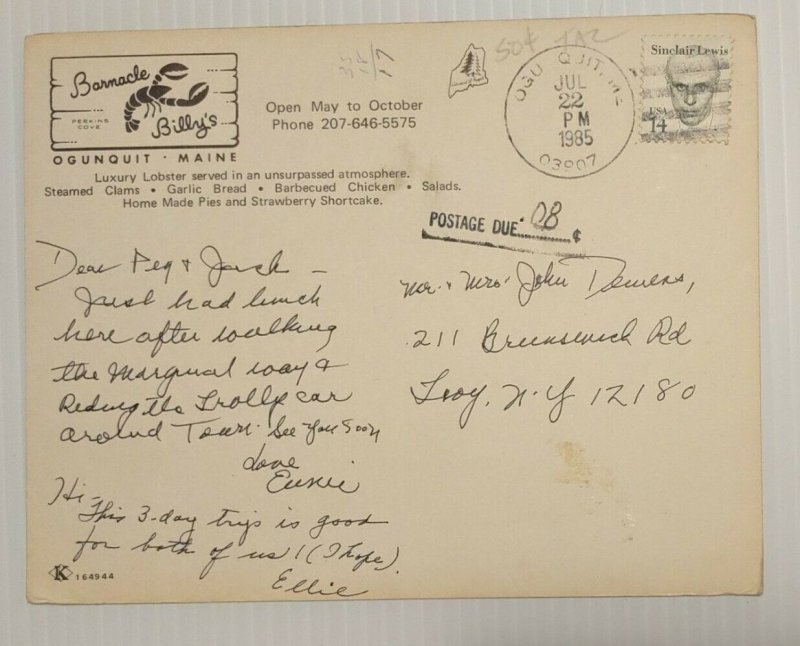 Barnacle
Billy's
PERKINS
COVE
OGUNQUIT · MAINE
Open May to October
Phone 207-646-5575
Luxury Lobster served in an unsurpassed atmosphere.
Steamed Clams • Garlic Bread • Barbecued Chicken • Salads.
Home Made Pies and Strawberry Shortcake.
50¢
OGUNQUIT, ME
JUL
22
PM
1985
03907
Sinclair Lewis
USA
14
POSTAGE DUE 08 ¢
Dear Peg & Jack –
Just had lunch
here after walking
the Marginal way &
Riding the Trolly car
around Town. See you soon
Love
Hi –
This 3-day trip is good
for both of us! (I hope).
Ellie
Mr. & Mrs. John
211 Brunswick Rd
Troy, N.Y 12180
K 164944